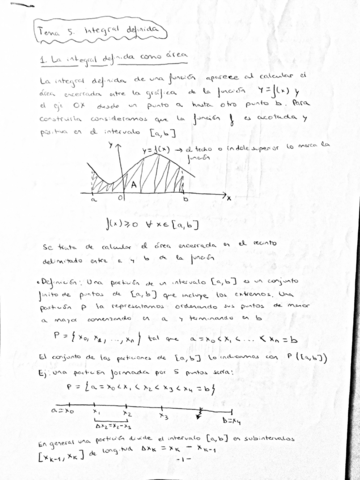 Tema 5. Integral definida
1. La integral definida como área
La integral definida de una función aparece al calcular el
área encerrada entre la gráfica de la función y=f(x) y
el eje OX desde un punto a hasta otro punto b. Para
construirla consideramos que la función f es acotada y
positiva en el intervalo [a,b]
y
y=f(x) → el techo o índole superior lo marca la
función
A
a 0 b x
f(x)≥0 ∀ x∈[a,b]
Se trata de calcular el área encerrada en el recinto
delimitado entre x y b de la función
• Definición: Una partición de un intervalo [a,b] es un conjunto
finito de puntos de [a,b] que incluye los extremos. Una
partición P la representamos ordenando sus puntos de menor
a mayor comenzando en a y terminando en b
P = {x₀, x₁, ..., xₙ} tal que a=x₀<x₁< ... <xₙ=b
El conjunto de las particiones de [a,b] lo indicamos con P([a,b])
Ej: una partición formada por 5 puntos sería:
P = {a=x₀<x₁<x₂<x₃<x₄=b}
a=x₀ x₁ x₂ x₃ b=x₄
Δx₂=x₂-x₁
En general una partición divide el intervalo [a,b] en subintervalos
[xₖ₋₁, xₖ] de longitud Δxₖ = xₖ - xₖ₋₁
-1-